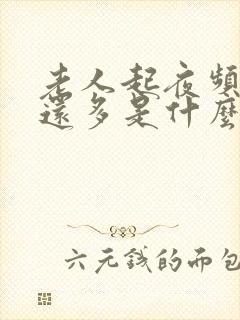 老人起夜頻
還多是什麼
六元錢的面包